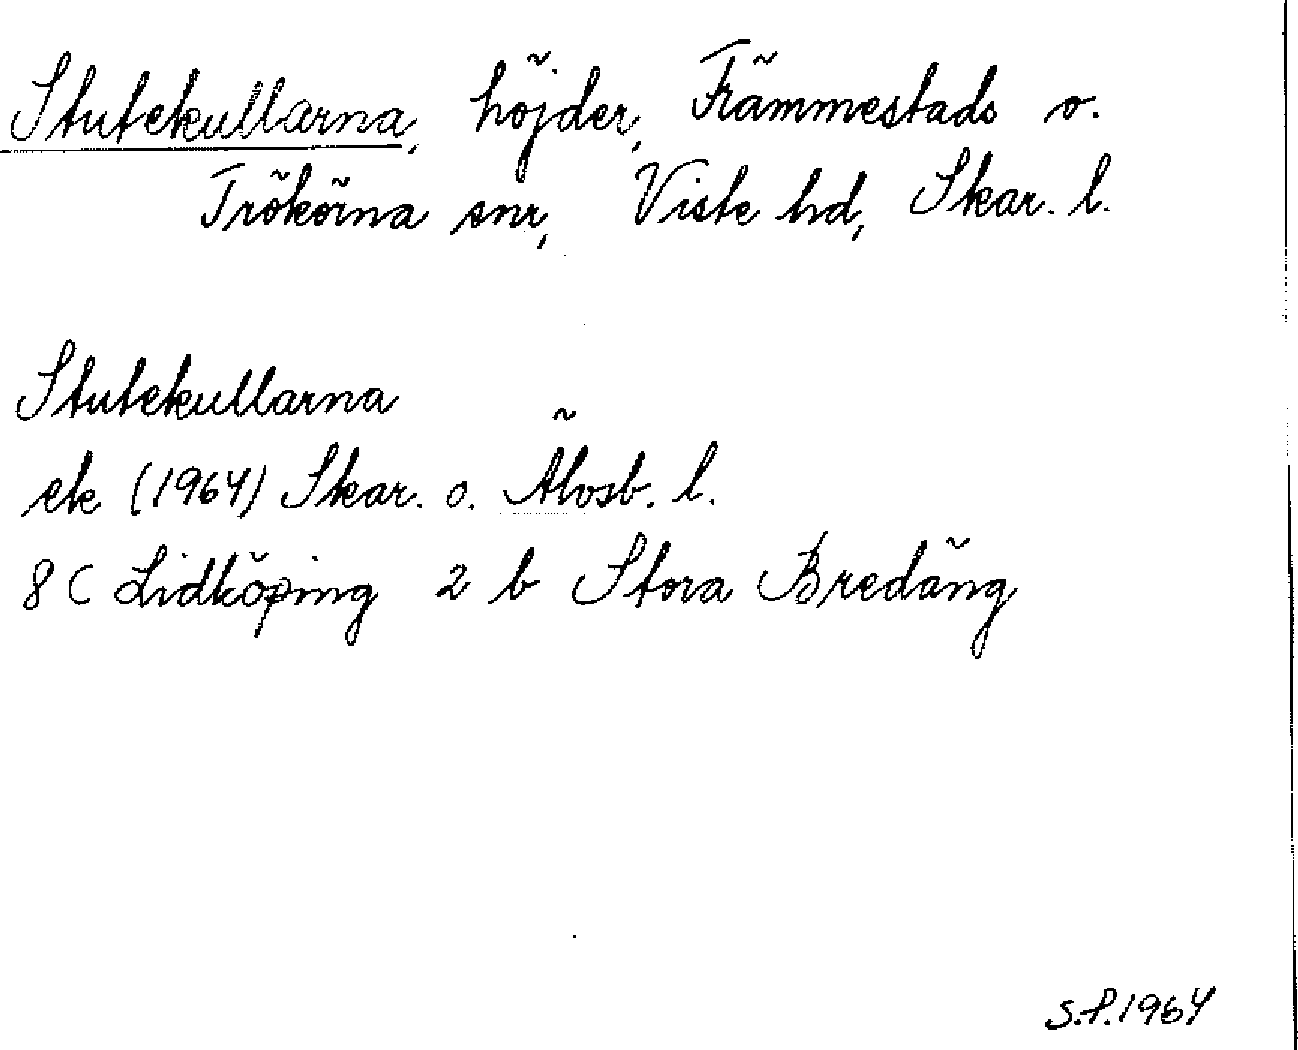 Stutekullarna, höjder, Främmestads o.
Trökörna snr, Viste hd, Skar. l.
Stutekullarna
ek (1964) Skar. o. Älvsb. l.
8 C Lidköping 2 b Stora Bredäng
S.P.1964